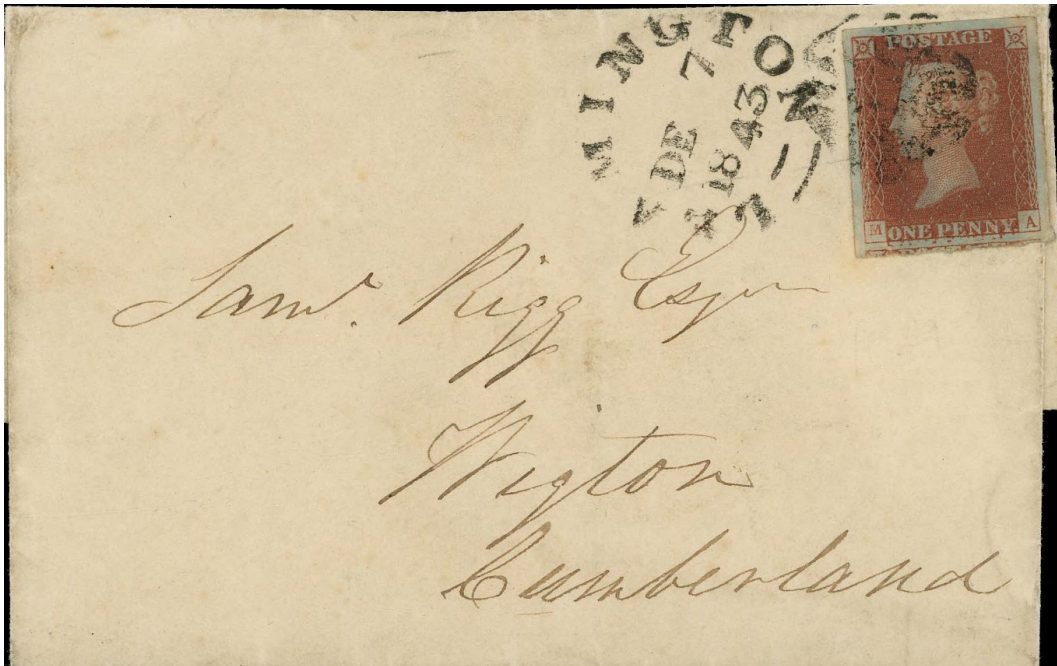 MINGTON
7
DE 7
1843
POSTAGE
M ONE PENNY A
Saml. Rigg Esqr
Wigton
Cumberland